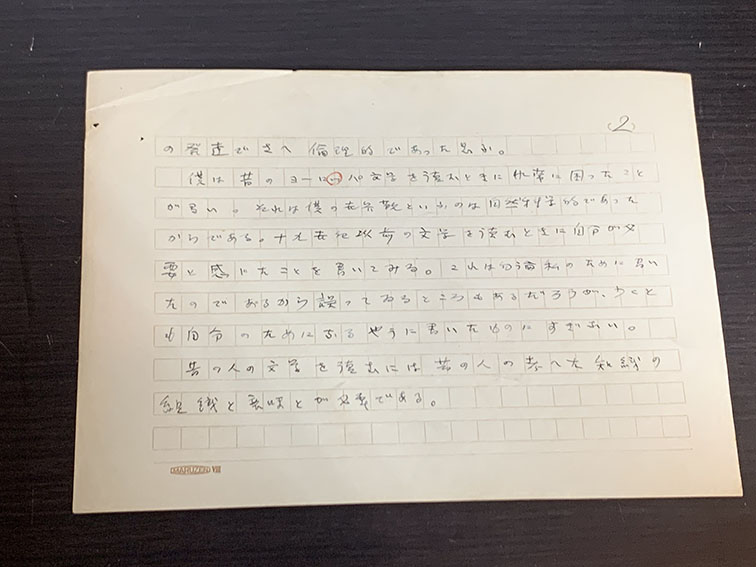 (2)
の発達でさへ倫理的であった思ふ。
僕は昔のヨーロッパ文学を読むときに非常に困ったこと
が多い。それは僕の教養といふのは自然科学的であった
からである。十九世紀以前の文学を読むときに自分が必
要と感じたことを書いてみる。これは勿論私のために書い
たのであるから誤ってゐるところもあるだろうが、
自分のためになるやうに書いたものにすぎない。
昔の人の文学を読むには昔の人の考へた知識の
組織と意味とが必要である。
MARUZEN VIII